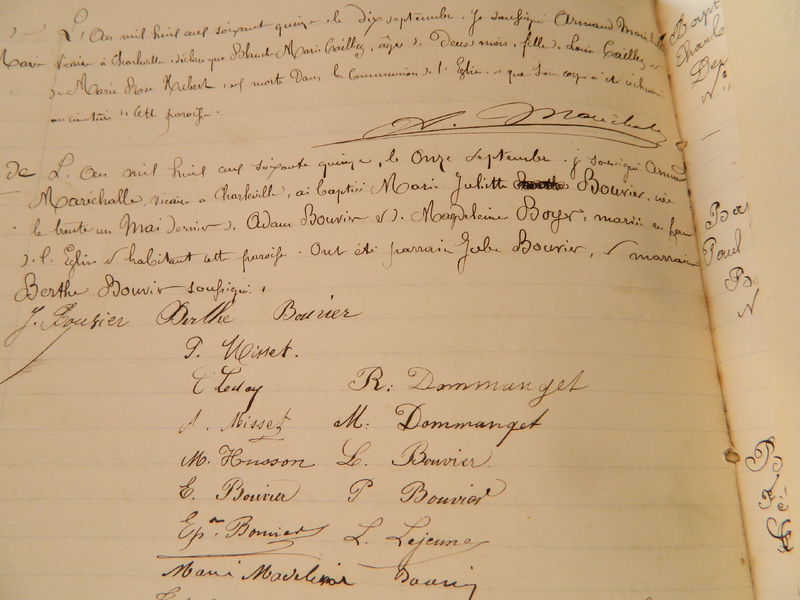 L'an mil huit cent soixante quinze, le dix septembre. Je soussigné Armand
Marie vicaire à Charleville, déclare que Blanche Marie Cailloz, âgée de Deux mois, fille de Louis Cailloz et
de Marie Rose Hubert, est morte Dans la Communion de l'Eglise, et que son corps a été inhumé
au cimetière de cette paroisse.
A. Maréchalle
De L'an mil huit cent soixante quinze, le onze septembre. je soussigné Armand
Maréchalle, vicaire à Charleville, ai baptisé Marie Juliette Bouvier, née
le trente un Mai dernier de Adam Bouvier et de Magdeleine Boyr, mariés en face
de l'Eglise et habitant cette paroisse. Ont été parrain Jules Bouvier, et marraine
Berthe Bouvier soussigné.
J. Bouvier Berthe Bouvier
P. Misset.
C Leday R. Dommanget
A. Misset M. Dommanget
M. Husson L. Bouvier
E. Bouvier P Bouvier
Bouvier L. Lejeune
Marie Madeleine
Bapt
Charl
Paul
N